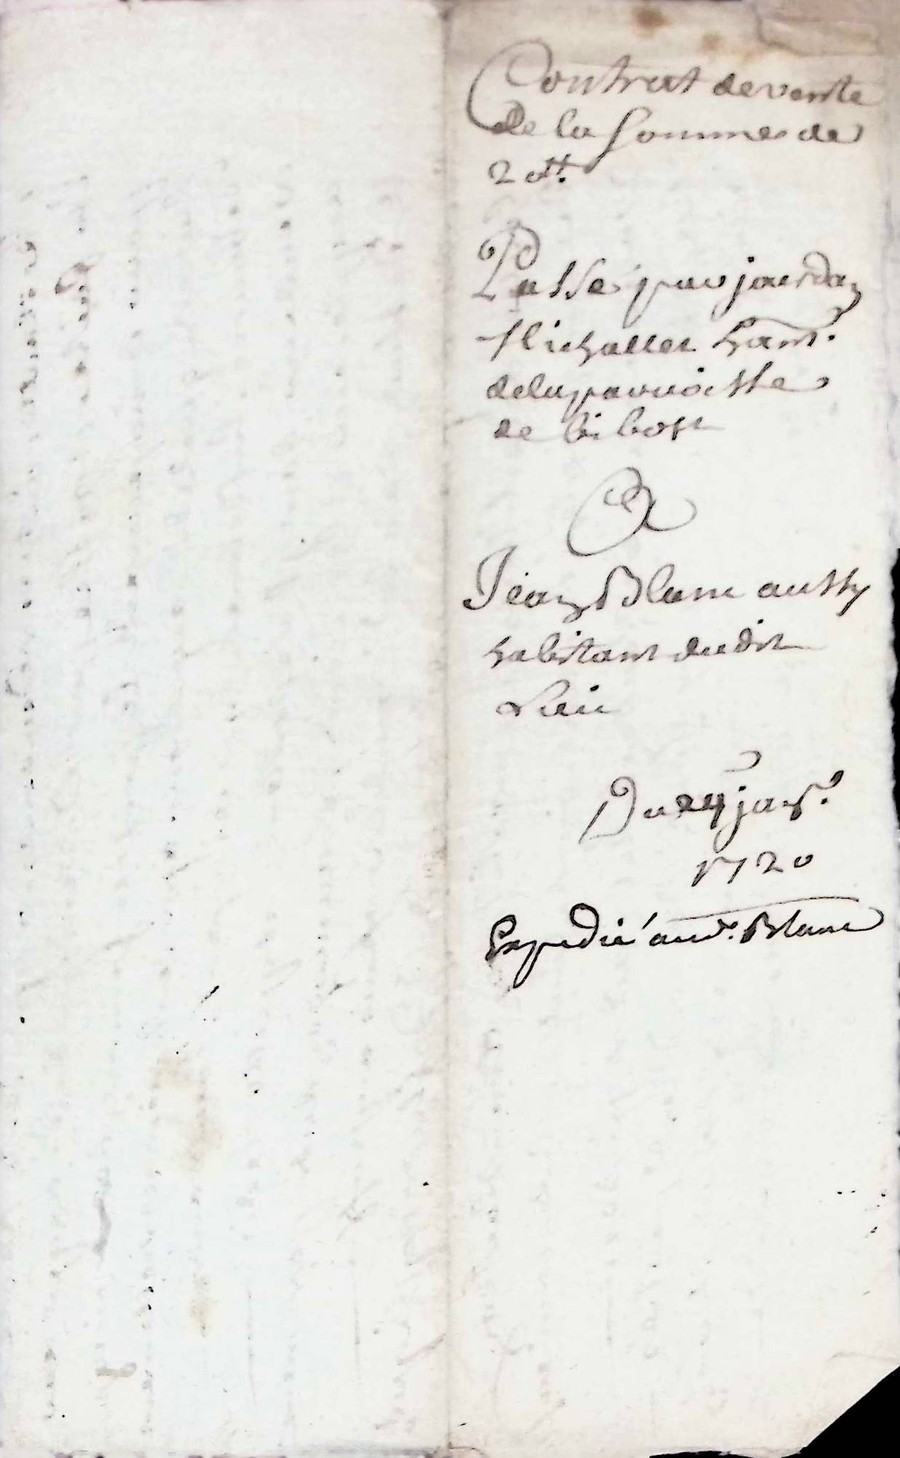 Contrat de vente
de la Somme de
20tt.
Passé par jourdan
Michallet hant.
de la parroisse
de bibost
A
Jean Blanc aussy
habitant dudit
Lieu
Du janv.
1720
Expedié aud. Blanc